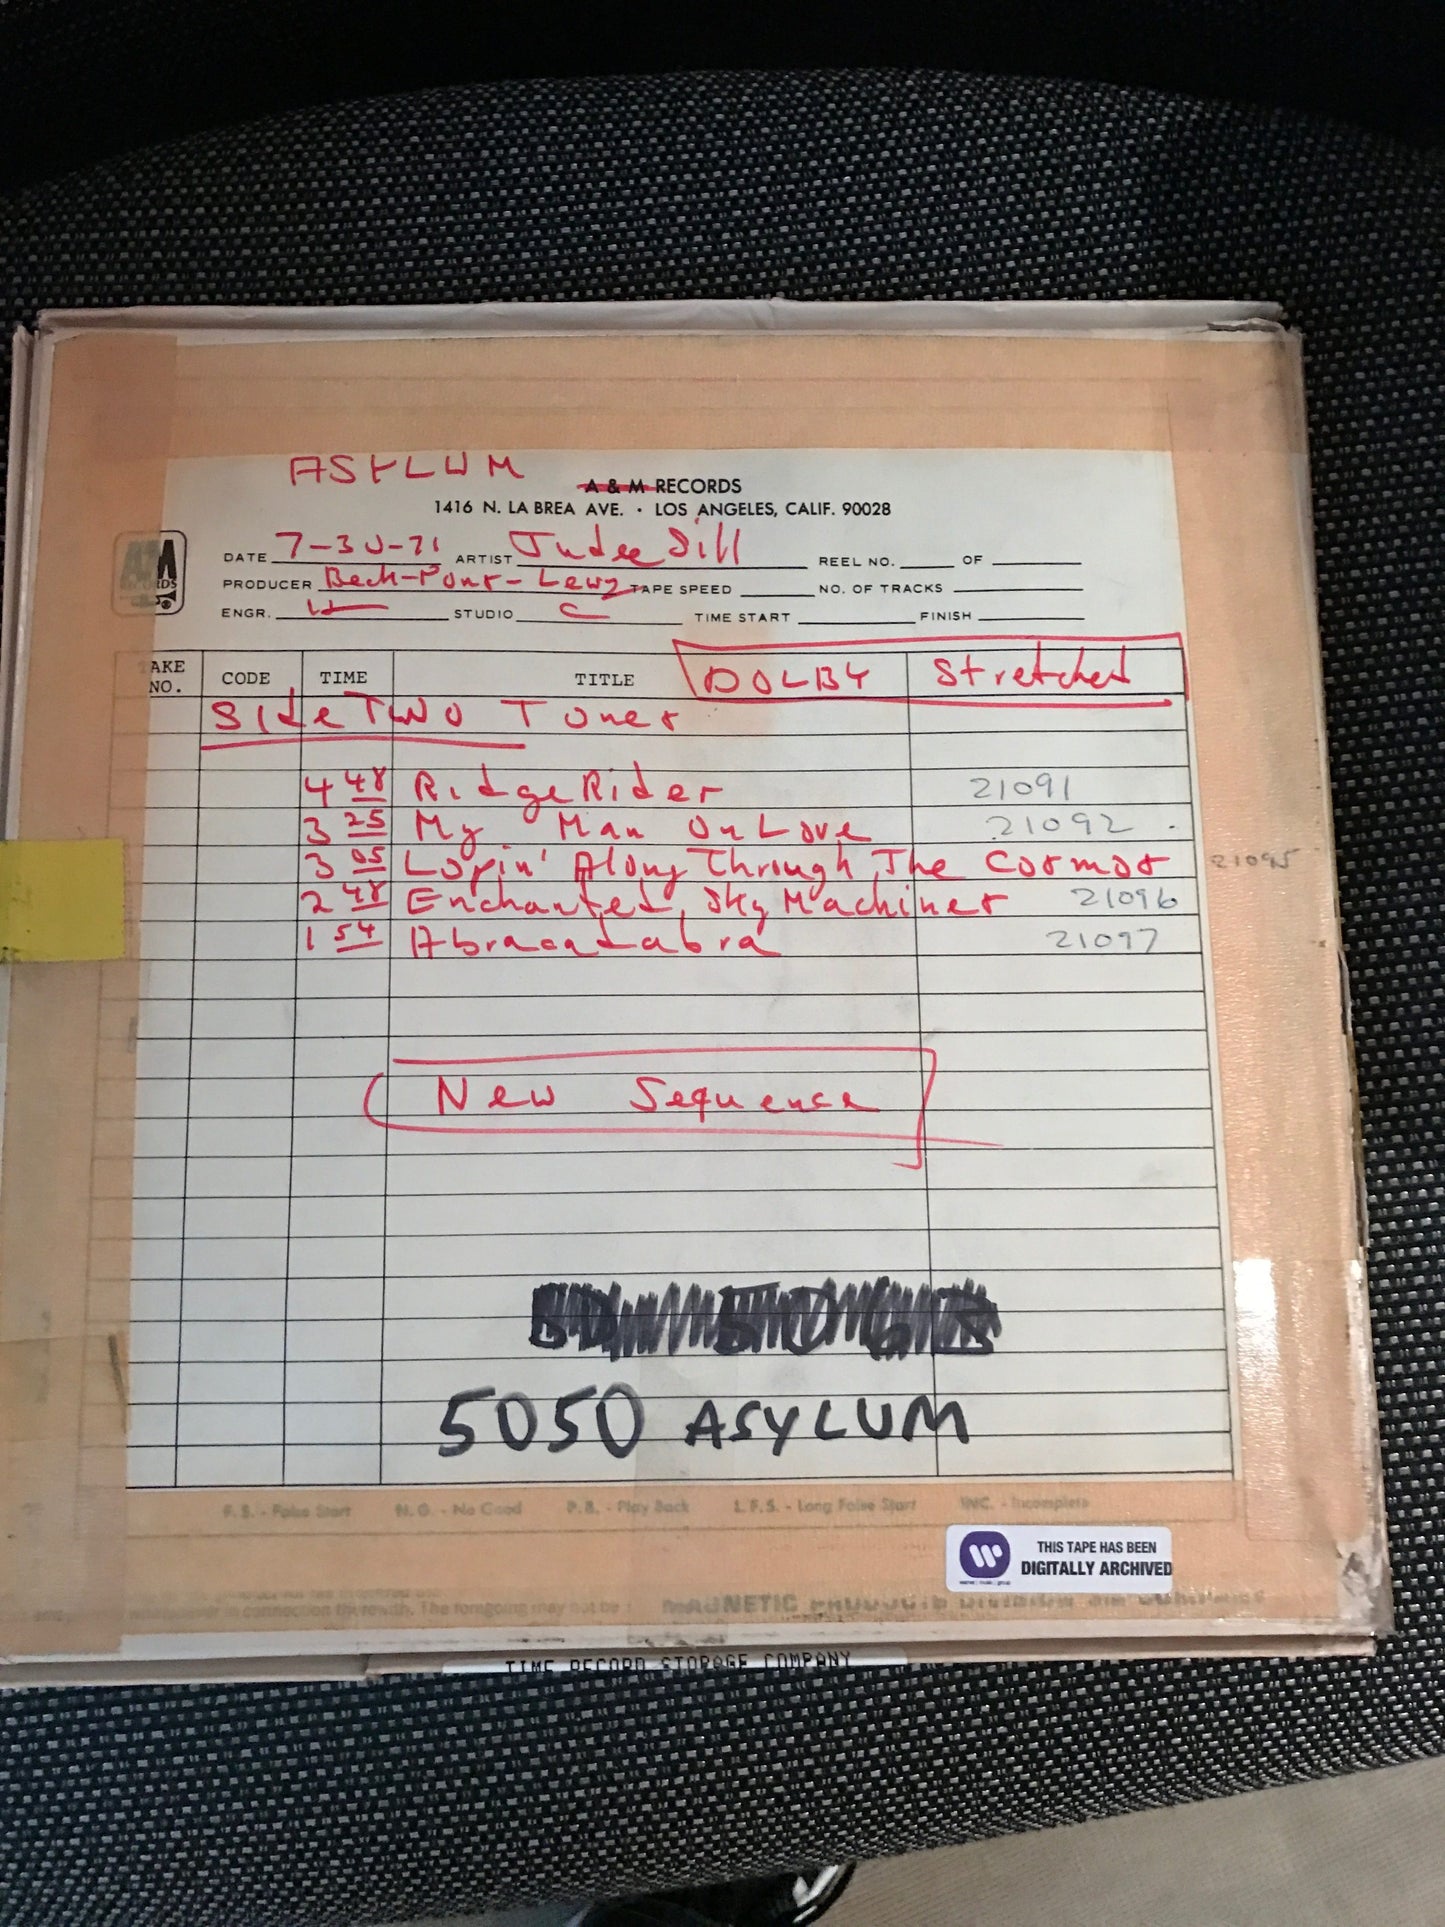 ASYLUM
A & M RECORDS
1416 N. LA BREA AVE. • LOS ANGELES, CALIF. 90028
DATE 7-30-71 ARTIST Judee Sill REEL NO. OF
PRODUCER Beck-Pons-Lewy TAPE SPEED NO. OF TRACKS
ENGR. STUDIO C TIME START FINISH
TAKE NO. CODE TIME TITLE DOLBY Stretched
Side Two Tones
4 48 Ridge Rider 21091
3 25 My Man On Love 21092
3 05 Lopin' Along Through The Cosmos 21095
2 48 Enchanted Sky Machines 21096
1 54 Abracadabra 21097
New Sequence
5050 ASYLUM
F.S. - False Start N.G. - No Good P.B. - Play Back L.F.S. - Long False Start INC. - Incomplete
THIS TAPE HAS BEEN
DIGITALLY ARCHIVED
in connection therewith. The foregoing may not be
MAGNETIC PRODUCTS DIVISION
TIME RECORD STORAGE COMPANY